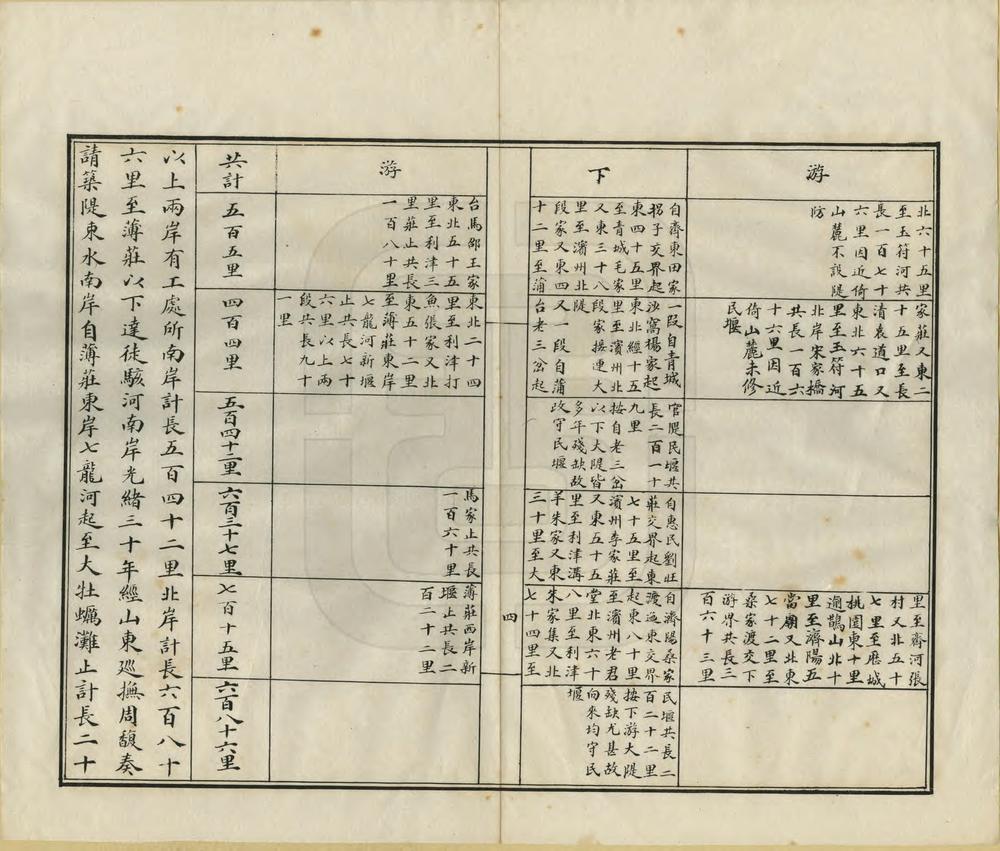 游
北六十五里
至玉符河共
長一百七十
六里因近倚
山麓不設隄
防
家莊又東二
十五里至長
清袁道口又
東北六十五
里至玉符河
北岸宋家橋
共長一百六
十六里因近
倚山麓未修
民堰
里至齊河張
村又北五十
七里至歷城
桃園東十里
逾鵲山北十
里至濟陽五
當廟又北東
七十二里至
桑家渡交下
游界共長三
百六十三里
下
自齊東田家
拐子交界起
東四十五里
至青城毛家
又東三十八
里至濱州北
段家又東四
十二里至蒲
一段自青城
沙窩楊家起
東北經十五
里至濱州北
段家接連大
隄
又一段自蒲
台老三岔起
官隄民堰共
長二百一十
九里
按自老三岔
以下大隄皆
多年殘缺故
改守民堰
自惠民劉旺
莊交界起東
七十五里至
濱州李家莊
又東五十五
里至利津溝
羊朱家又東
三十里至大
自濟陽桑家
渡迤東交界
起東八十里
至濱州老君
堂北東六十
八里至利津
朱家集又北
七十四里至
民堰共長二
百二十二里
按下游大隄
殘缺尤甚故
向來均守民
堰
四
游
台馬邵王家
東北五十五
里至利津三
里莊止共長
一百八十里
東北二十四
里至利津打
魚張家又北
東五十二里
至薄莊東岸
七龍河新堰
止共長七十
六里以上兩
段共長九十
一里
馬家止共長
一百六十里
薄莊西岸新
堰止共長二
百二十二里
共計
五百五里
四百四里
五百四十二里
六百三十七里
七百十五里
六百八十六里
以上兩岸有工處所南岸計長五百四十二里北岸計長六百八十
六里至薄莊以下達徒駭河南岸光緒三十年經山東巡撫周馥奏
請築隄束水南岸自薄莊東岸七龍河起至大牡蠣灘止計長二十